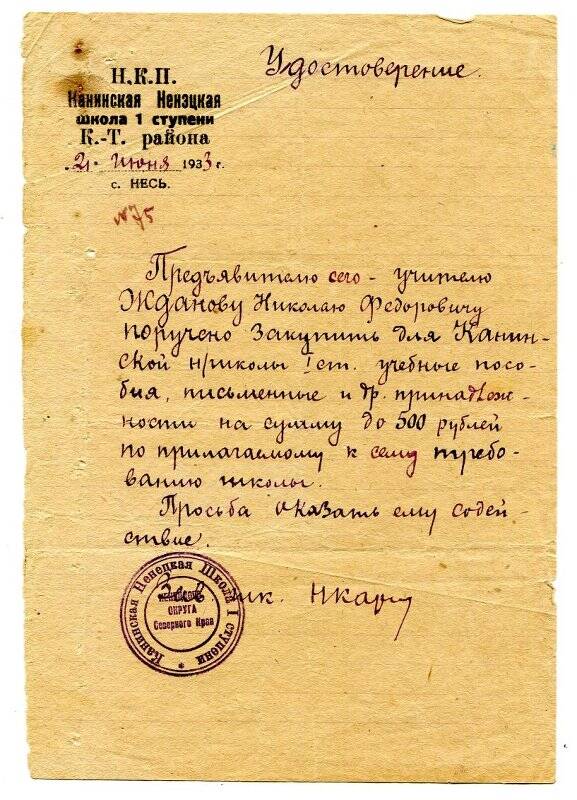 Удостоверение.
Н.К.П.
Канинская Ненэцкая
школа 1 ступени
К.-Т. района
21 июня 1933 г.
с. НЕСЬ.
№75
Предъявителю сего - учителю
Жданову Николаю Федоровичу
поручено закупить для Канин-
ской н/школы I ст. учебные посо-
бия, письменные и др. принадлеж-
ности на сумму до 500 рублей
по прилагаемому к сему требо-
ванию школы.
Просьба оказать ему содей-
ствие.
Зав.
Канинская Ненецкая Школа I ступени
ОКРУГА
Северного Края